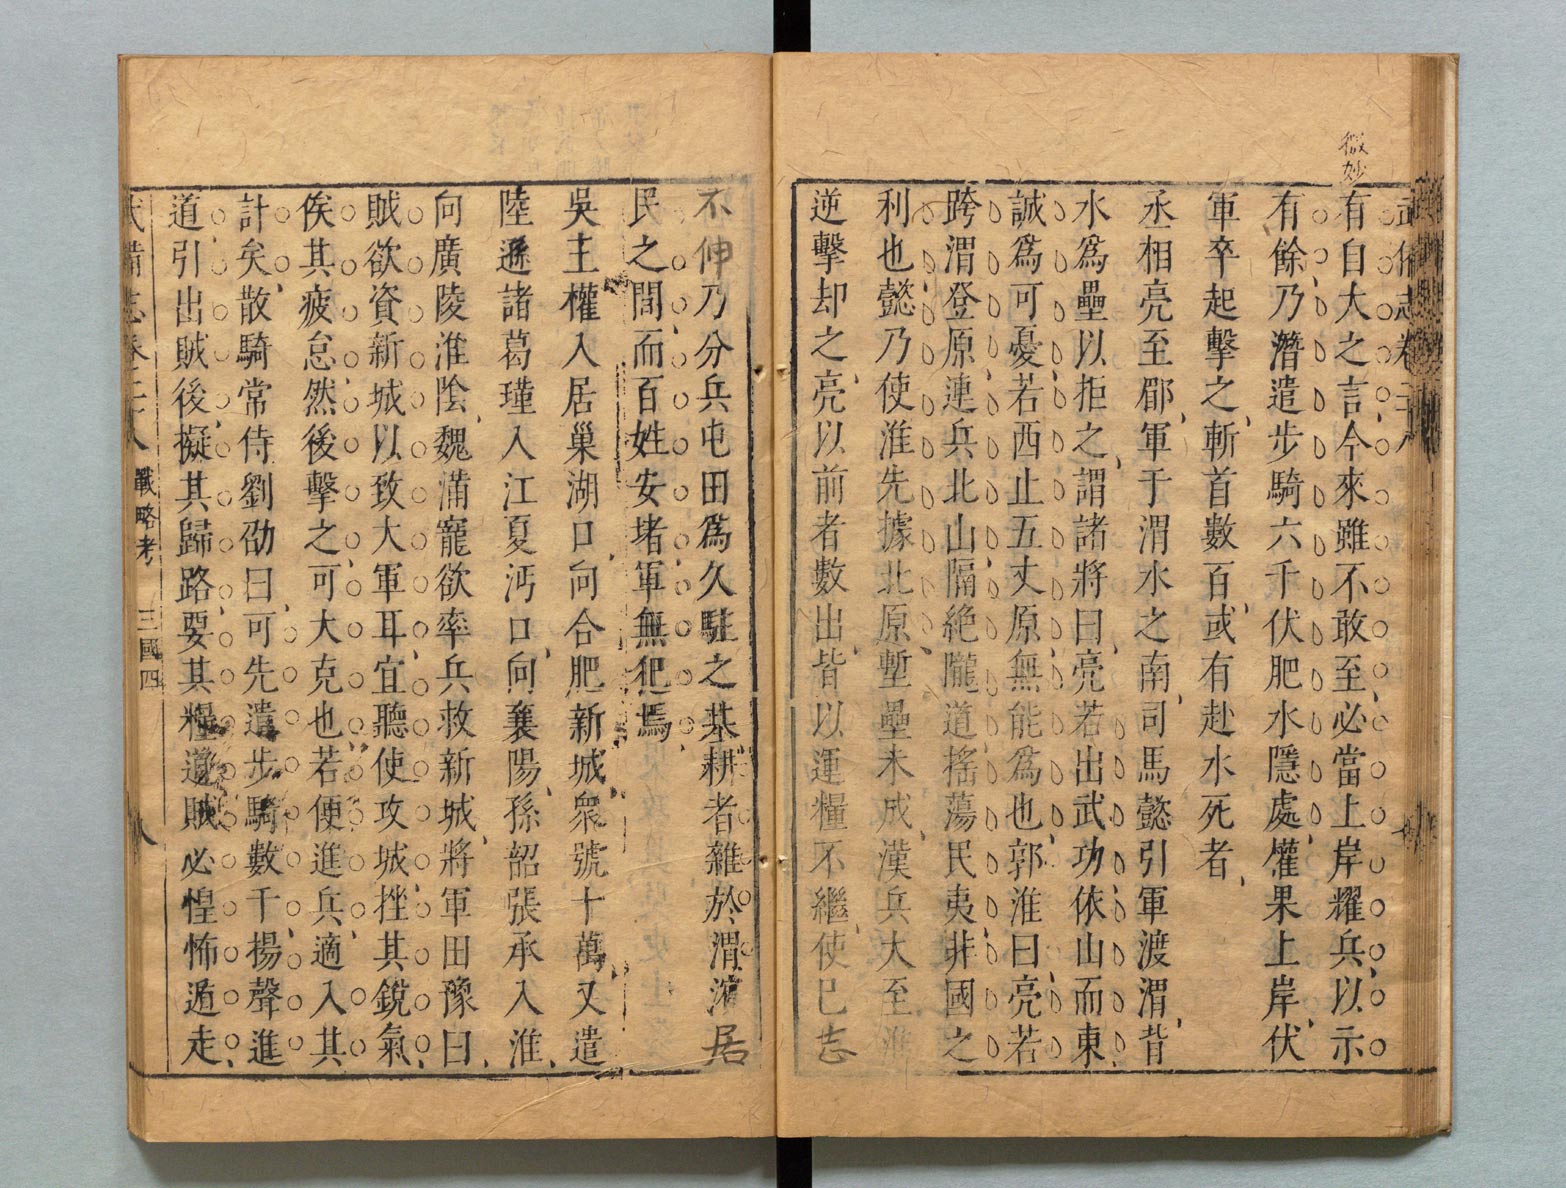 微妙
有自大之言今來雖不敢至必當上岸耀兵以示
有餘乃潛遣步騎六千伏肥水隱處權果上岸伏
軍卒起擊之斬首數百或有赴水死者
丞相亮至郿軍于渭水之南司馬懿引軍渡渭背
水為壘以拒之謂諸將曰亮若出武功依山而東
誠為可憂若西止五丈原無能為也郭淮曰亮若
跨渭登原連兵北山隔絕隴道搖蕩民夷非國之
利也懿乃使淮先據北原塹壘未成漢兵大至淮
逆擊却之亮以前者數出皆以運糧不繼使已志
不伸乃分兵屯田為久駐之基耕者雜於渭濱居
民之間而百姓安堵軍無犯焉
吳王權入居巢湖口向合肥新城衆號十萬又遣
陸遜諸葛瑾入江夏沔口向襄陽孫韶張承入淮
向廣陵淮陰魏滿寵欲率兵救新城將軍田豫曰
賊欲資新城以致大軍耳宜聽使攻城挫其銳氣
俟其疲怠然後擊之可大克也若便進兵適入其
計矣散騎常侍劉劭曰可先遣步騎數千揚聲進
道引出賊後擬其歸路要其糧道賊必惶怖遁走
武備志卷二十八 戰略考 三國四 八